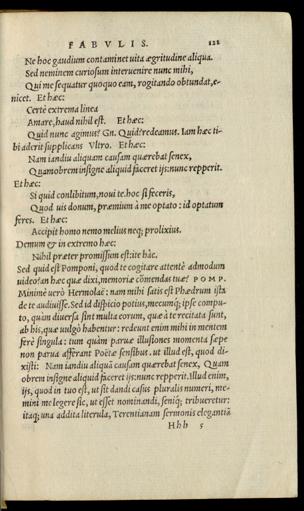 FABVLIS. 122
Ne hoc gaudium contaminet uita ægritudine aliqua.
Sed neminem curiosum interuenire nunc mihi,
Qui me sequatur quoquo eam, rogitando obtundat, e-
nicet. Et hæc:
Certè extrema linea
Amare, haud nihil est. Et hæc:
Quid nunc agimus? Gn. Quid? redeamus. Iam hæc ti-
bi aderit supplicans Vltro. Et hæc:
Nam iandiu aliquam causam quærebat senex,
Quamobrem insigne aliquid faceret ijs: nunc repperit.
Et hæc:
Si quid conlibitum, noui te. hoc si feceris,
Quod uis donum, præmium à me optato: id optatum
feres. Et hæc:
Accipit homo nemo melius neq; prolixius.
Demum & in extremo hæc:
Nihil præter promissum est: ite hàc.
Sed quid est Pomponi, quod te cogitare attentè admodum
uideo? an hæc quæ dixi, memoriæ cōmendas tuæ? POMP.
Minimè uerò Hermolaë: nam mihi satis est Phædrum ista
de te audiuisse. Sed id dispicio potius, mecumq; ipse compu-
to, quàm diuersa sint multa eorum, quæ à te recitata sunt,
ab his, quæ uulgò habentur: redeunt enim mihi in mentem
ferè singula: tum quàm paruæ illusiones momenta sæpe
non parua afferant Poëtæ sensibus. ut illud est, quod di-
xisti: Nam iandiu aliquā causam quærebat senex, Quam
obrem insigne aliquid faceret ijs: nunc repperit. Illud enim,
ijs, quod in tuo est, ut sit dandi casus pluralis numeri, me-
mini me legere sic, ut esset nominandi, seniq; tribueretur:
itaq; una addita literula, Terentianam sermonis elegantiā
Hhh 5